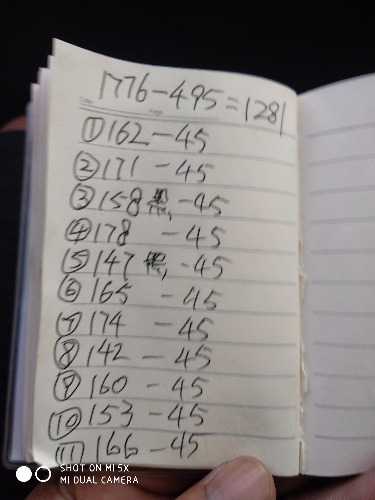 1776-495=1281
①162-45
②171-45
③158黑,-45
④178-45
⑤147黑,-45
⑥165-45
⑦174-45
⑧142-45
⑨160-45
⑩153-45
⑪166-45
SHOT ON MI 5X
MI DUAL CAMERA